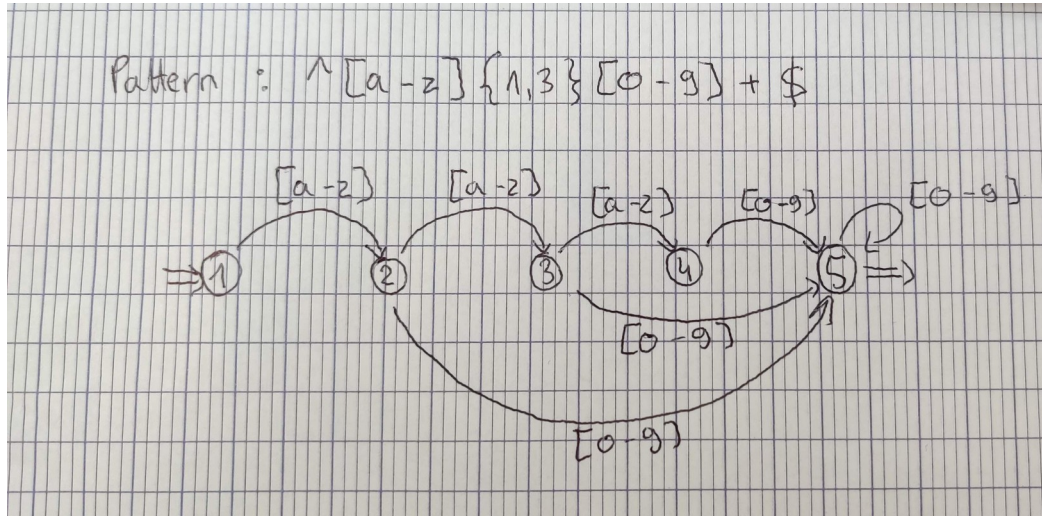 Pattern : ^ [a-z]{1,3}[0-9]+$
[a-z] [a-z] [a-z] [0-9] [0-9]
1 2 3 4 5
[0-9]
[0-9]